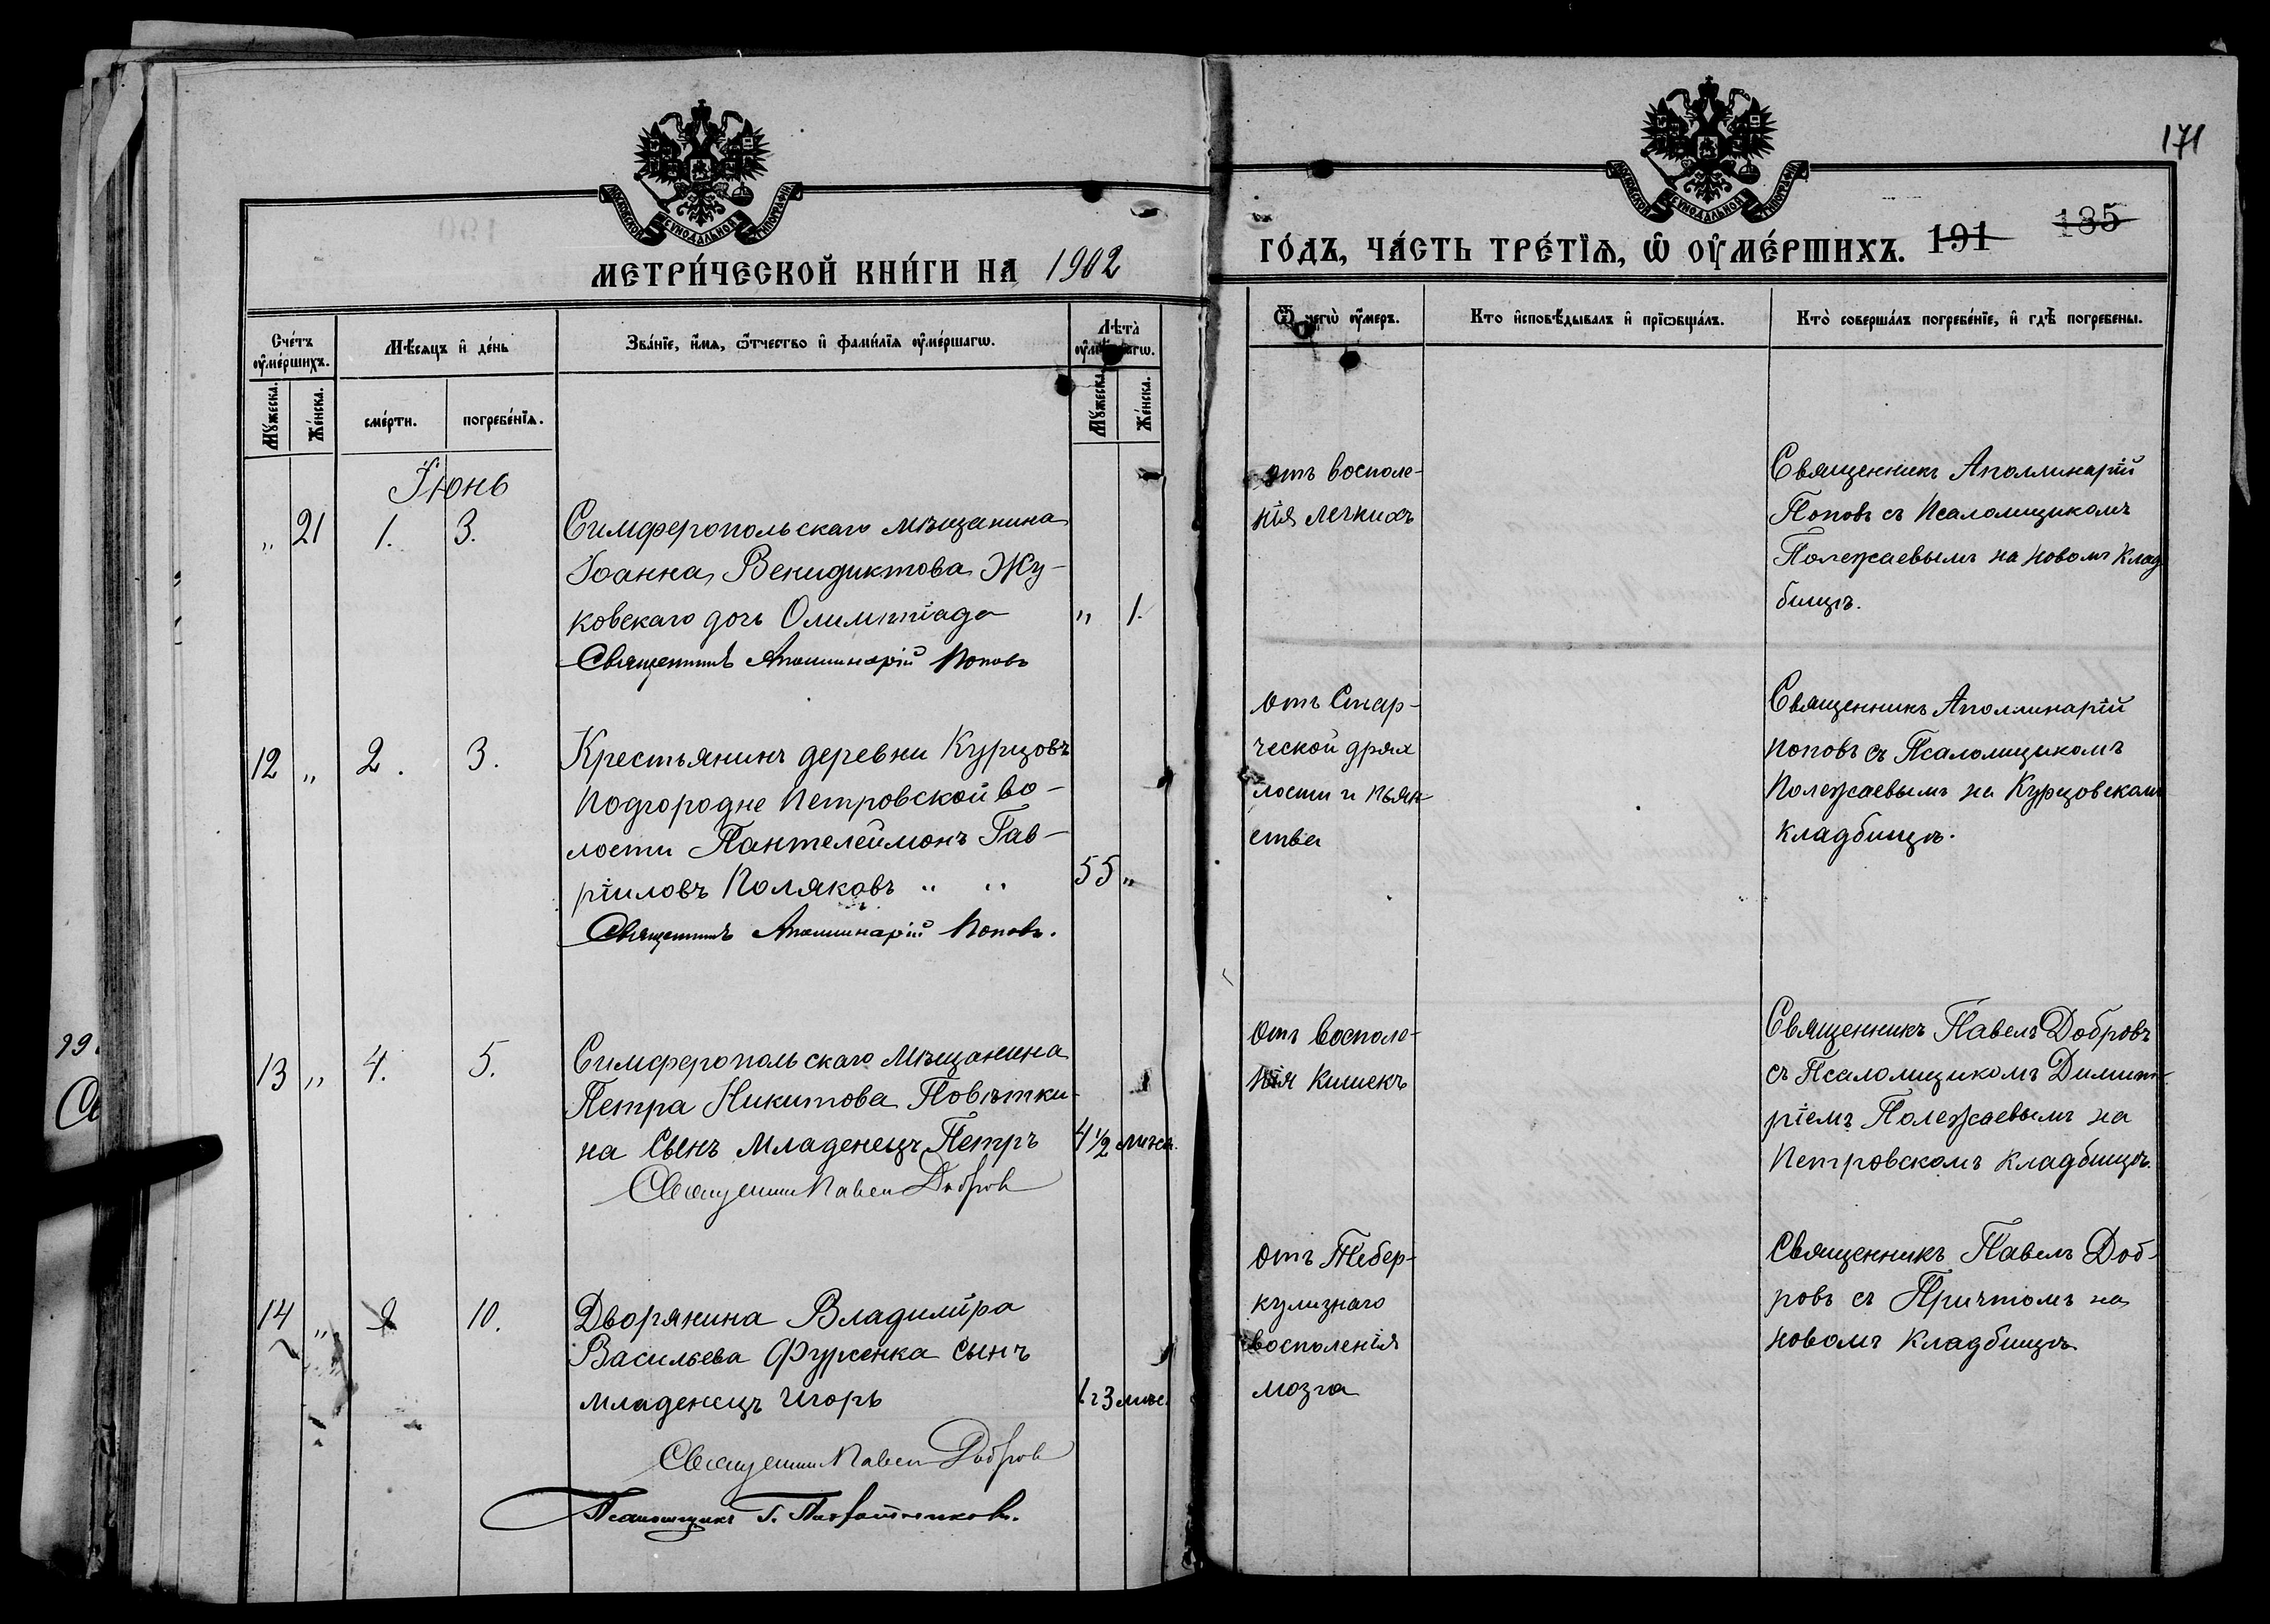 171
МОСКОВСКОЙ СѴНОДАЛЬНОЙ ТИПОГРАФІИ
МОСКОВСКОЙ СѴНОДАЛЬНОЙ ТИПОГРАФІИ
МЕТРИ́ЧЕСКОЙ КНИ́ГИ НА 1902
ГО́ДЪ, ЧА́СТЬ ТРЕ́ТЇѦ, Ѡ҆ ОУ҆МЕ́РШИХЪ. 191 185
Сче́тъ оу҆ме́ршихъ.
Мꙋ́жеска.
Же́нска.
Мѣ́сяцъ и҆ де́нь
сме́рти.
погребе́нїѧ.
Зва́нїе, и҆́мя, ѻ҆́тчество и҆ фами́лїѧ оу҆ме́ршагѡ.
Лѣ́та̀
Мꙋ́жеска.
Же́нска.
Ѿ чегѡ̀ оу҆́меръ.
Кто̀ и҆сповѣ́дывалъ и҆ прїѡбща́лъ.
Кто̀ соверша́лъ погребе́нїе, и҆ гдѣ̀ погребены̀.
Іюнь
„ 21 1. 3.
Симферопольскаго мѣщанина
Іоанна Венидиктова Жу-
ковскаго дочь Олимпіада „ 1.
Священникъ Аполлинарій Поповъ
отъ восполе-
нія легкихъ
Священникъ Аполлинарій
Поповъ съ Псаломщикомъ
Полежаевымъ на новомъ Клад
бищѣ.
12 „ 2. 3.
Крестьянинъ деревни Курцовъ
Подгородне Петровской во-
лости Пантелеймонъ Гав-
ріиловъ Поляковъ „ „ 55 „
Священникъ Аполлинарій Поповъ.
отъ Стар-
ческой дрях
лости и пьян-
ства
Священникъ Аполлинарій
Поповъ съ Псаломщикомъ
Полежаевымъ на Курцовскомъ
кладбищѣ.
13 „ 4. 5.
Симферопольскаго мѣщанина
Петра Никитова Повѣтки-
на Сынъ младенецъ Петръ 4 1/2
Священникъ Павелъ Добровъ
отъ восполе-
нія Кишекъ
Священникъ Павелъ Добровъ
съ Псаломщикомъ Димит-
ріемъ Полежаевымъ на
Петровскомъ кладбищѣ.
14 „ 10.
Дворянина Владиміра
Васильева Фурженка сынъ
младенецъ Игорь 1 г 3 мѣс.
Священникъ Павелъ Добровъ
Псаломщикъ Г.
отъ Тебер-
кулизнаго
восполенія
мозга
Священникъ Павелъ Доб-
ровъ съ Причтомъ на
новомъ Кладбищѣ